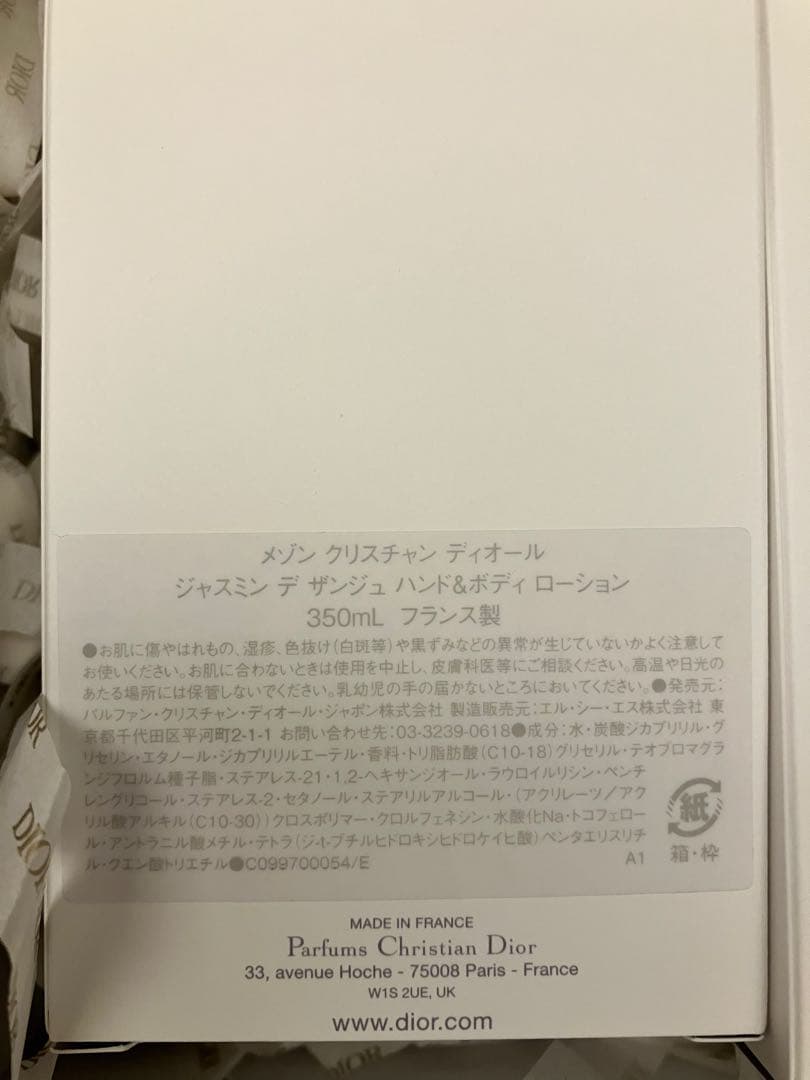 DIOR
メゾン クリスチャン ディオール
ジャスミン デ ザンジュ ハンド&ボディ ローション
350mL フランス製
●お肌に傷やはれもの、湿疹、色抜け(白斑等)や黒ずみなどの異常が生じていないかよく注意して
お使いください。お肌に合わないときは使用を中止し、皮膚科医等にご相談ください。高温や日光の
あたる場所には保管しないでください。乳幼児の手の届かないところにおいてください。●発売元:
パルファン・クリスチャン・ディオール・ジャポン株式会社 製造販売元:エル・シー・エス株式会社 東
京都千代田区平河町2-1-1 お問い合わせ先:03-3239-0618●成分:水・炭酸ジカプリリル・グ
リセリン・エタノール・ジカプリリルエーテル・香料・トリ脂肪酸(C10-18)グリセリル・テオブロマグラ
ンジフロルム種子脂・ステアレス-21・1,2-ヘキサンジオール・ラウロイルリシン・ペンチ
レングリコール・ステアレス-2・セタノール・ステアリルアルコール・(アクリレーツ/アク
リル酸アルキル(C10-30))クロスポリマー・クロルフェネシン・水酸化Na・トコフェロー
ル・アントラニル酸メチル・テトラ(ジ-t-ブチルヒドロキシヒドロケイヒ酸)ペンタエリスリチ
ル・クエン酸トリエチル●C099700054/E
A1
紙
箱・枠
MADE IN FRANCE
Parfums Christian Dior
33, avenue Hoche - 75008 Paris - France
W1S 2UE, UK
www.dior.com
DIOR